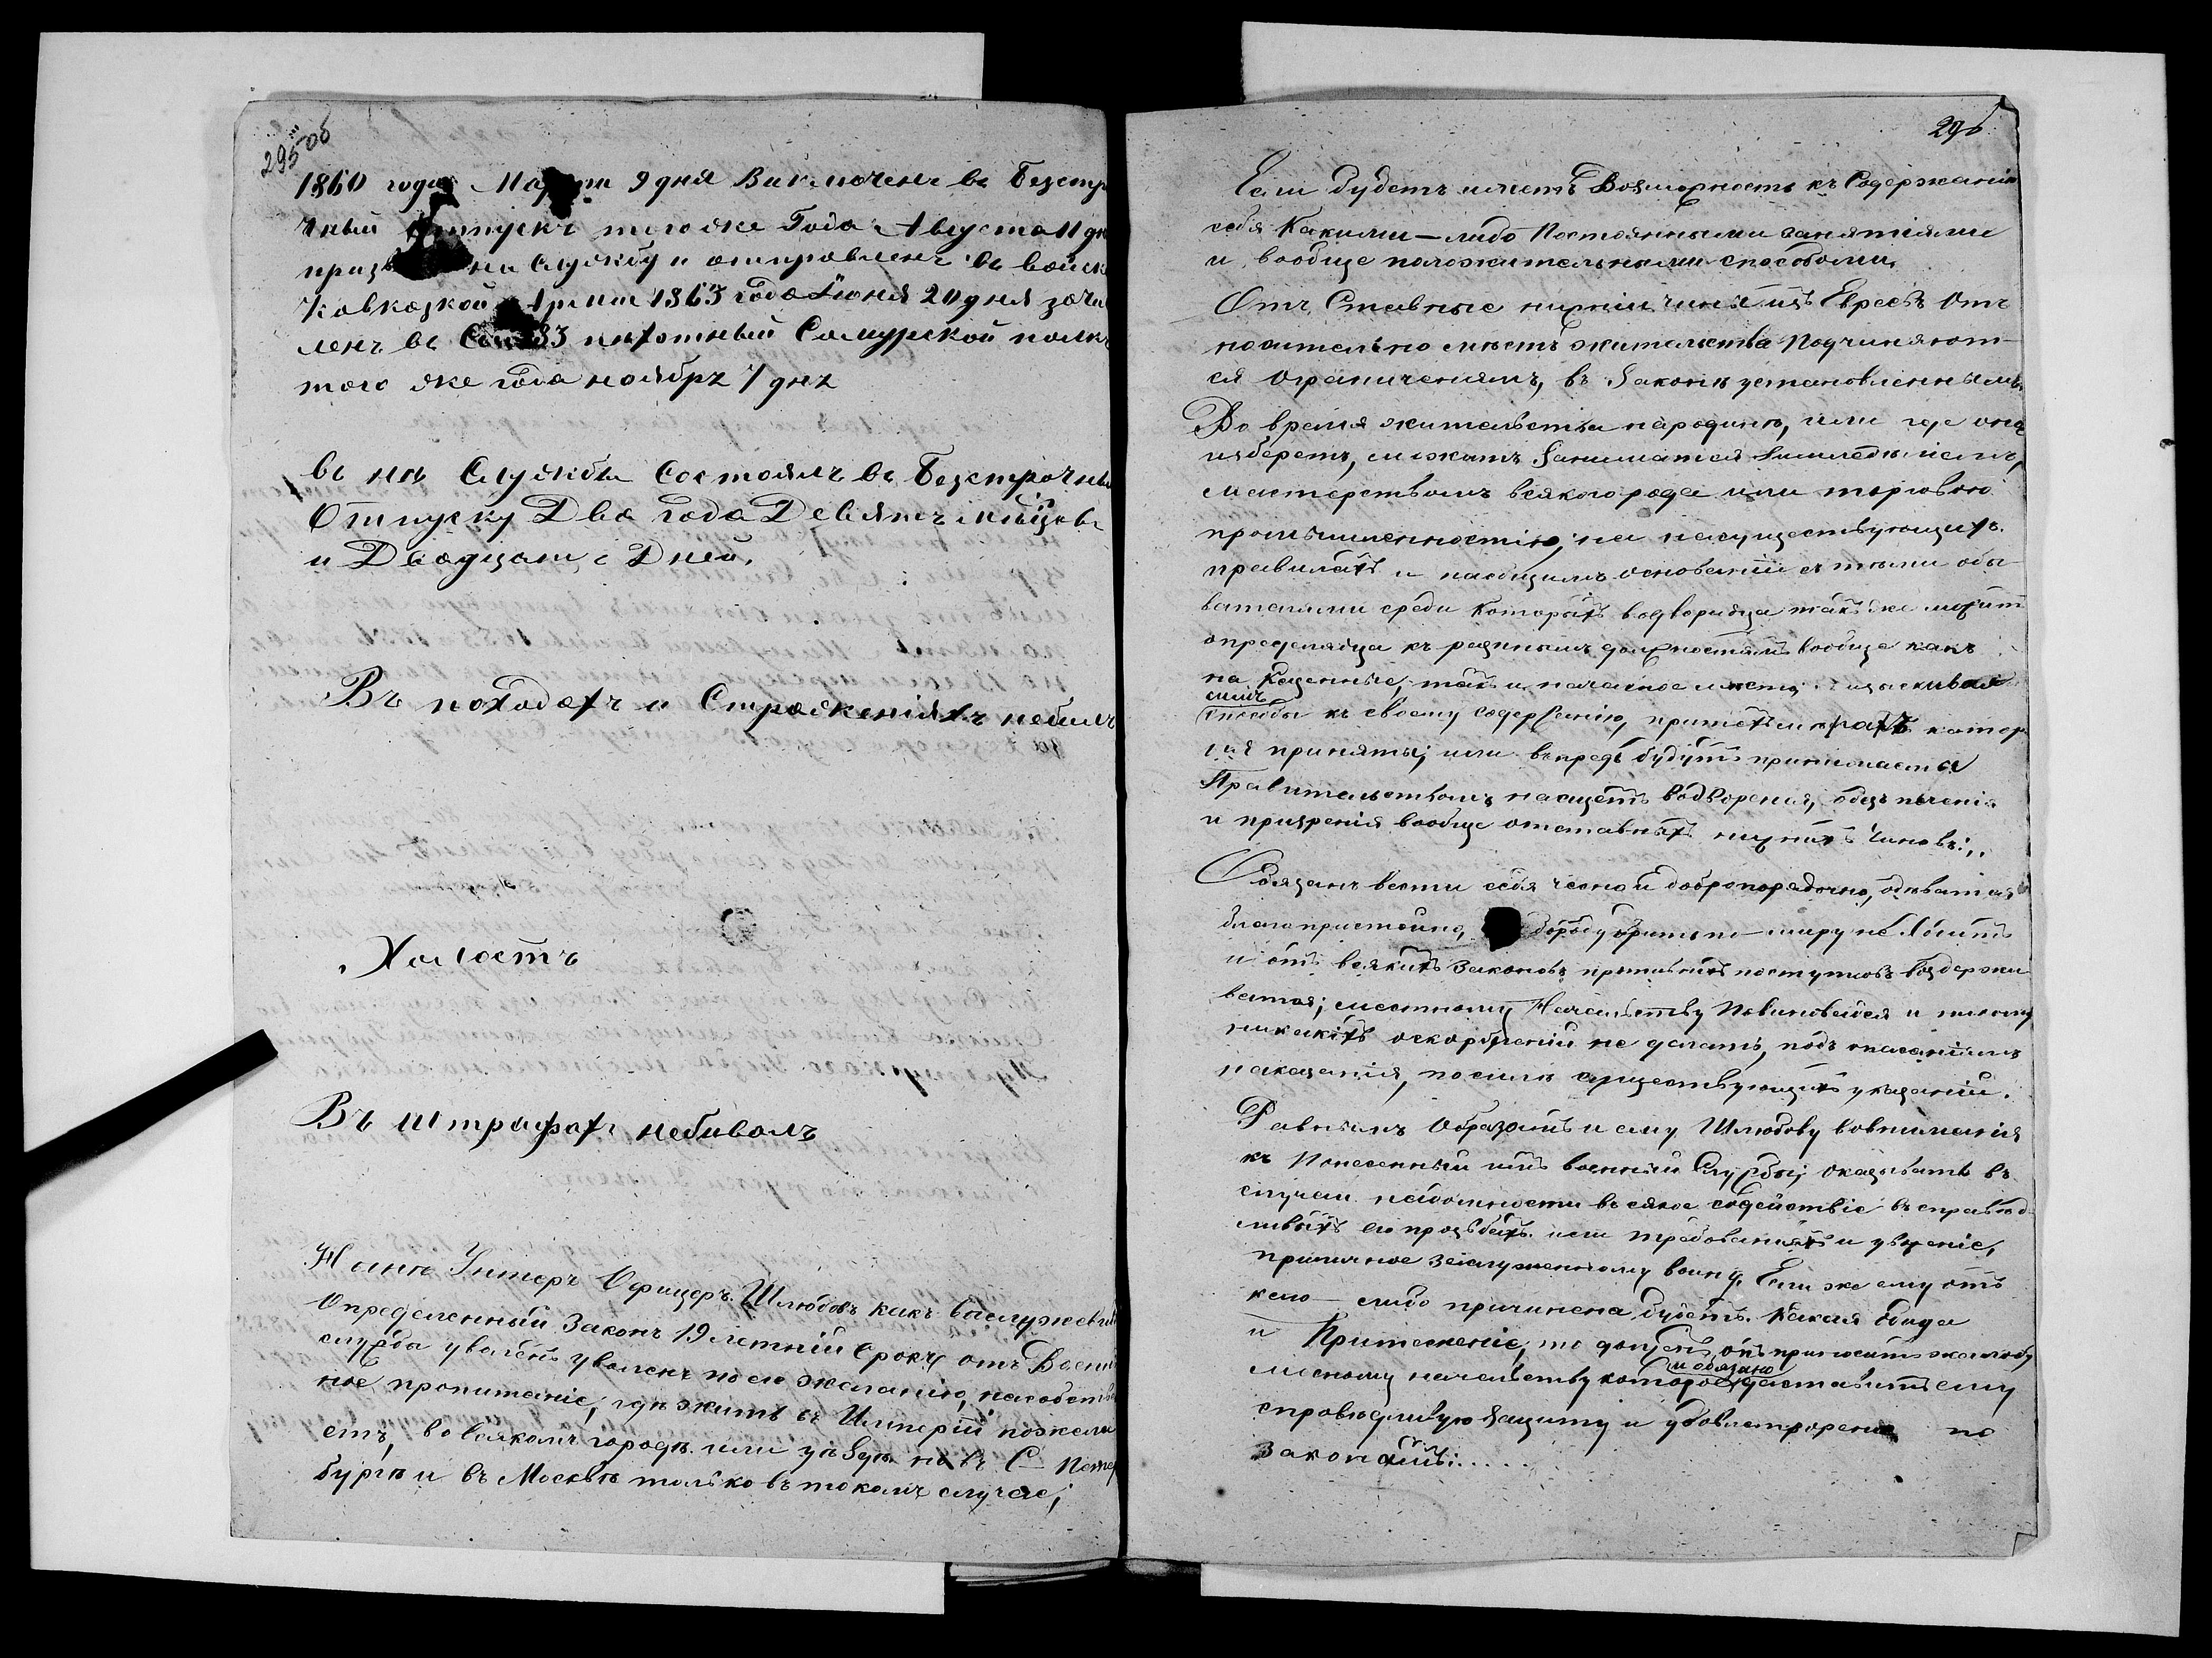 295 об
1860 года Марта 9 дня Виключенъ въ Безстр
чный Отпускъ того же Года Августа 11 дн
призв на Службу и отправленъ въ войск
Кавказкой Армии 1863 года Июня 20 дня зачи
ленъ въ 83 пехотный Самурской полкъ
того же года ноябрь 7 дня
въ на Службы Состоялъ въ Безстрочны
Отпуску Два Года Девять мѣсяцовъ
и Двадцать Дней.
Въ походахъ и Стражениѣхъ небилъ
Холостъ
Въ штрафахъ небивалъ
Нынѣ Унтеръ Офицеръ Шлюбовъ какъ васлужевш
Определенный Законъ 19 летній Срокъ отъ Воен
службы уволенъ по его желанію, насобств
ное пропитаніе, гдѣ жить въ Имперіи пожела
етъ, во всякомъ городѣ или уѣздѣ но въ С-Петер
бургѣ и въ Москвѣ только въ такомъ случае;
296
Если будетъ иметъ Возможность къ Содержанію
себя Какими-либо Постоянными занятиями
и вообще положительными способоми.
Отъ Ставные нижніи чинѣ изъ Евреевъ Отъ
носительно местъ жительства Подчиняют-
ся Ограниченіямъ, въ Законѣ установленнымъ.
Во время жительства народинѣ, или где онъ
изберетъ, можатъ Заниматся
мастерствомъ всякого рода или торговою
промышленностію; на насуществующихъ
правилахъ и наобщимъ основаніи съ тѣми обы
вателями среди Которыхъ водворидца также можитъ
определядца къ разнымъ должностямъ вообще какъ
на Казенные, такъ и начасное место изыскивая
симъ
способы къ своему содержанію, при мѣрахъ котор
ия приняты; или впредь будутъ приниматся
Правительствомъ насчетъ водворения, обезпеченія
и призренія вообще отставныхъ нижнихъ Чиновъ:,.
Обязанъ вести себя чесно и добропорядочно, одѣватся
благопристойно, бороду брить по-миру не Ходить
и отъ всякихъ Законовъ противныхъ поступковъ воздержи
ватся; местному Начальству Повиноватся и никому
никакихъ оскорбленій не делать, подъ опасеніемъ
наказанія, посилѣ существующихъ указаній.
Равнымъ Образомъ и ему Шлюбову вовниманія
къ Понесенный имъ военный Службы; оказывать въ
случаи надобности всякое содействіе въ справѣд
ливыхъ его прозьбахъ или требованияхъ и уваженіе,
приличное заслуженному воину. Если же ему отъ
кого-либо причинена будетъ Какая обида
и Притесненіе, то долженъ онъ приносить жалобу
и обязано
месному начальству которое доставитъ ему
справедливую защиту и удовлетворение по
законамъ:.....